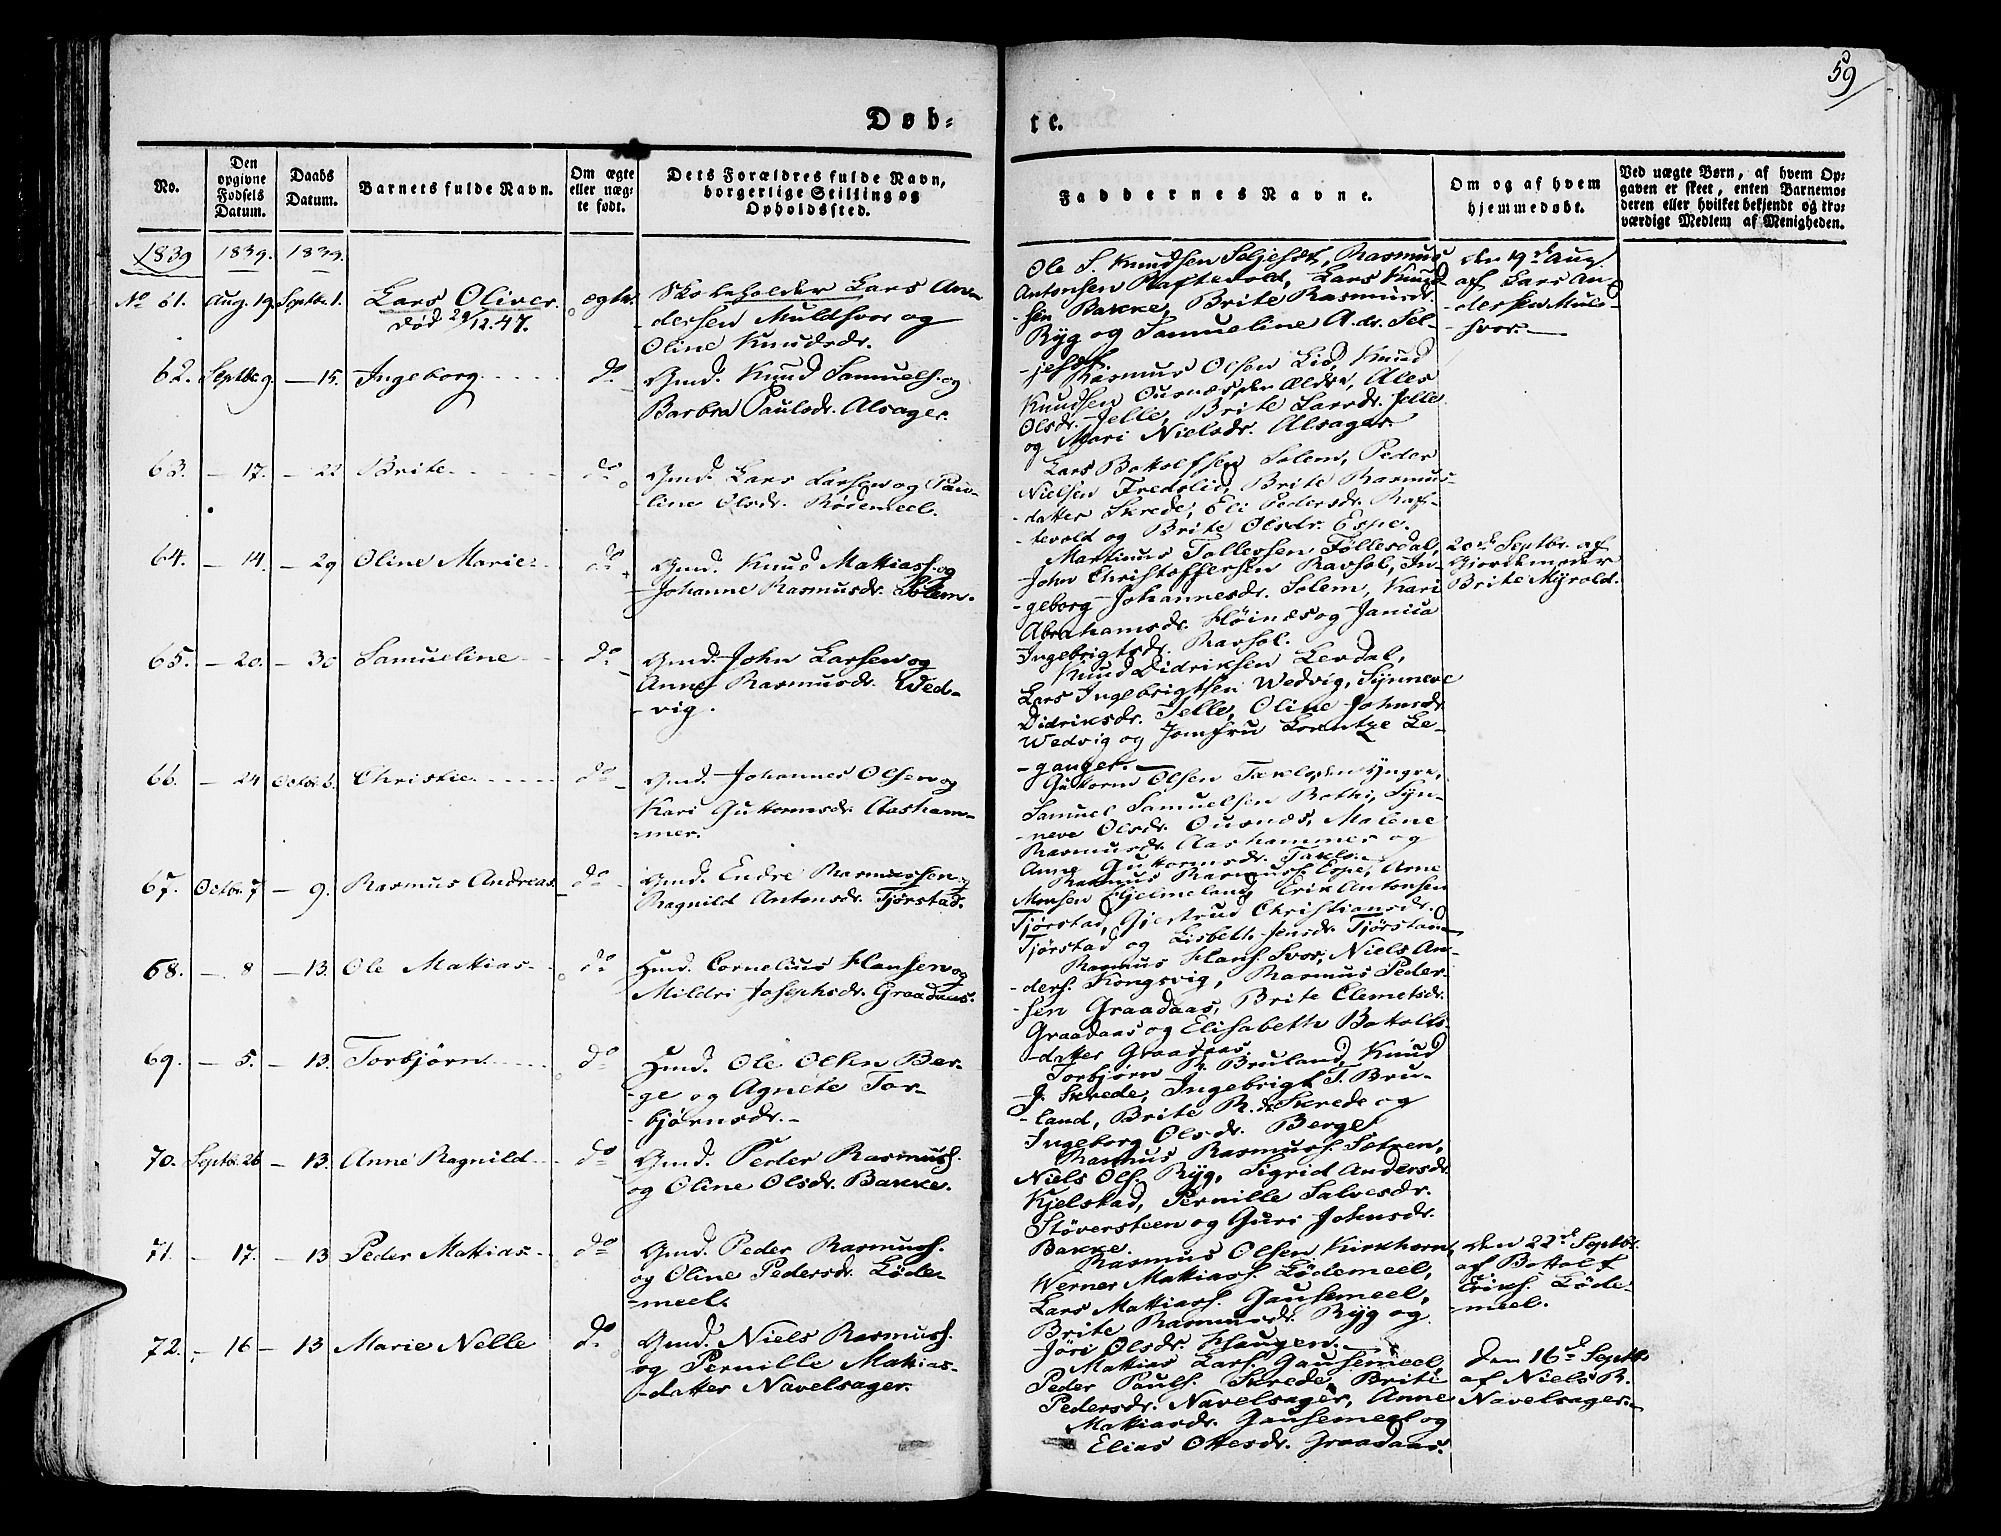 59
Døb-
te.
No.
Den opgivne Fødsels Datum.
Daabs Datum.
Barnets fulde Navn.
Om ægte eller uæg- te født.
Dets Forældres fulde Navn, borgerlige Stilling og Opholdssted.
Faddernes Navne.
Om og af hvem hjemmedøbt.
Ved uægte Børn, af hvem Op- gaven er skeet, enten Barnemo- deren eller hvilket bekjendt og tro- værdigt Medlem af Menigheden.
1839 1839. 1839.
No 61. Aug. 19. Septbr. 1. Lars Oliver. ægte.
død 29/12.47.
Skoleholder Lars An-
dersen Muldsvor og
Oline Knudsdr.
Ole S. Knudsen Seljeset, Rasmus
Antonsen Raftevold, Lars Knud-
sen Bakke, Brite Rasmusdr.
Ryg og Samueline A.dr. Sel-
-jeset.
den 19de Aug.
af Lars An-
dersen Muld-
svor.
62. Septbr. 9. — 15. Ingeborg do
Gmd. Knud Samuels. og
Barbra Paulsdr. Alsager.
Rasmus Olsen Lid, Knud
Knudsen Ousnæs den Ældre, Ales
Olsdr. Jelle, Brite Larsdr. Jelle
og Mari Nielsdr. Alsager.
63. — 17. — 22 Brite do
Gmd. Lars Larsen og Pau-
line Olsdr. Rødemeel.
Lars Bottolfsen Solem, Peder
Nielsen Fredslid, Brite Rasmus-
datter Skrede, Eli Pedersdr. Raf-
tevold og Brite Olsdr. Espe.
64. — 14. — 29 Oline Marie do
Gmd. Knud Mathiass. og
Johanne Rasmusdr. Solem.
Mathias Tollefsen Føllesdal,
John Christoffersen Ravsøl, In-
geborg Johannesdr. Solem, Kari
Abrahamsdr. Høinæs og Janica
Ingebrigtsdr. Ravsøl.
20de Septbr. af
Gjordemoder
Brite Myrold.
65. — 20. — 30 Samueline do
Gmd. John Larsen og
Anne Rasmusdr. Wed-
-vig.
Knud Didriksen Levdal,
Lars Ingebrigtsen Wedvig, Synneve
Didriksdr. Jelle, Oline Johnsdr
Wedvig og Jomfru Lorentze Le-
-ganger.
66. — 24 Octobr. 6. Christie do
Gmd. Johannes Olsen og
Kari Guttormsdr. Aasham-
mer.
Guttorm Olsen Taklo den Yngre,
Samuel Samuelsen Bothi, Syn-
neve Olsdr. Ousnæs, Malene
Rasmusdr. Aashammer og
Anne Guttormsdr. Taklo.
67. Octbr. 7 — 9. Rasmus Andreas do
Gmd. Endre Rasmussen og
Ragnild Antonsdr. Tjørstad.
Rasmus Rasmuss. Espe, Arne
Monsen Hjelmeland, Erik Antonsen
Tjørstad, Gjertrud Christiansdr.
Tjørstad og Lisbeth Jensdr. Tjørstad
68. — 8 — 13. Ole Mathias do
Hmd. Cornelius Hansen og
Mildri Josephsdr. Graadaas.
Rasmus Hans. Svor, Niels An-
ders. Kongsvig, Rasmus Peder-
sen Graadaas, Brite Clemetsdr.
Graadaas og Elisabeth Bottolfs-
-datter Graadaas.
69. — 5. — 13. Torbjørn do
Hmd. Ole Olsen Ber-
ge og Agnete Tor-
bjørnsdr.
Torbjørn R. Bruland, Knud
J. Skrede, Ingebrigt T. Bru-
land, Brite R.dr. Skrede og
Ingeborg Olsdr. Berge
70. Septbr. 26 — 13. Anne Ragnild do
Gmd. Peder Rasmuss.
og Oline Olsdr. Bakke.
Rasmus Rasmuss. Sætren,
Niels Ols. Ryg, Sigrid Andersdr.
Kjelstad, Pernille Salvesdr.
Støversteen og Guri Johnsdr.
Bakke.
71. — 17. — 13 Peder Mathias do
Gmd. Peder Rasmuss.
og Oline Pedersdr. Løde-
meel.
Rasmus Olsen Kirkhorn,
Werner Mathiass. Lødemeel,
Lars Mathiass. Gausemeel,
Brite Rasmusdr. Ryg og
Jøri Olsdr. Haugen.
den 22de Septbr.
af Bottolf
Eriks. Løde-
meel.
72. — 16 — 13 Marie Nelle do
Gmd. Niels Rasmuss.
og Pernille Mathias-
-datter Navelsager.
Mathias Lars. Gausemeel,
Peder Pauls. Skrede, Brite
Pedersdr. Navelsager, Anne
Mathiasdr. Gausemeel og
Elias Ottesdr. Graadaas.
den 16de Septbr.
af Niels R.
Navelsager.